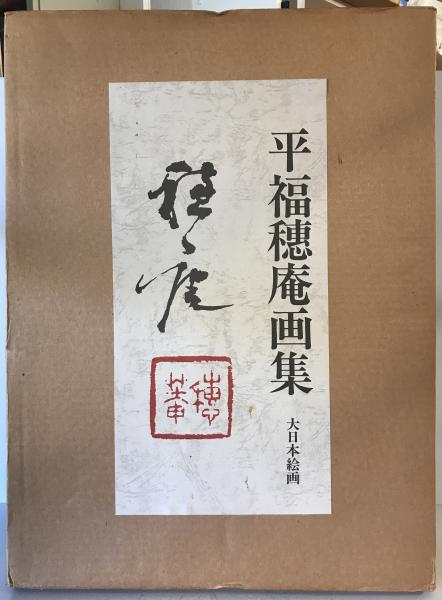 平福穂庵画集
大日本絵画
穂庵
穂菴